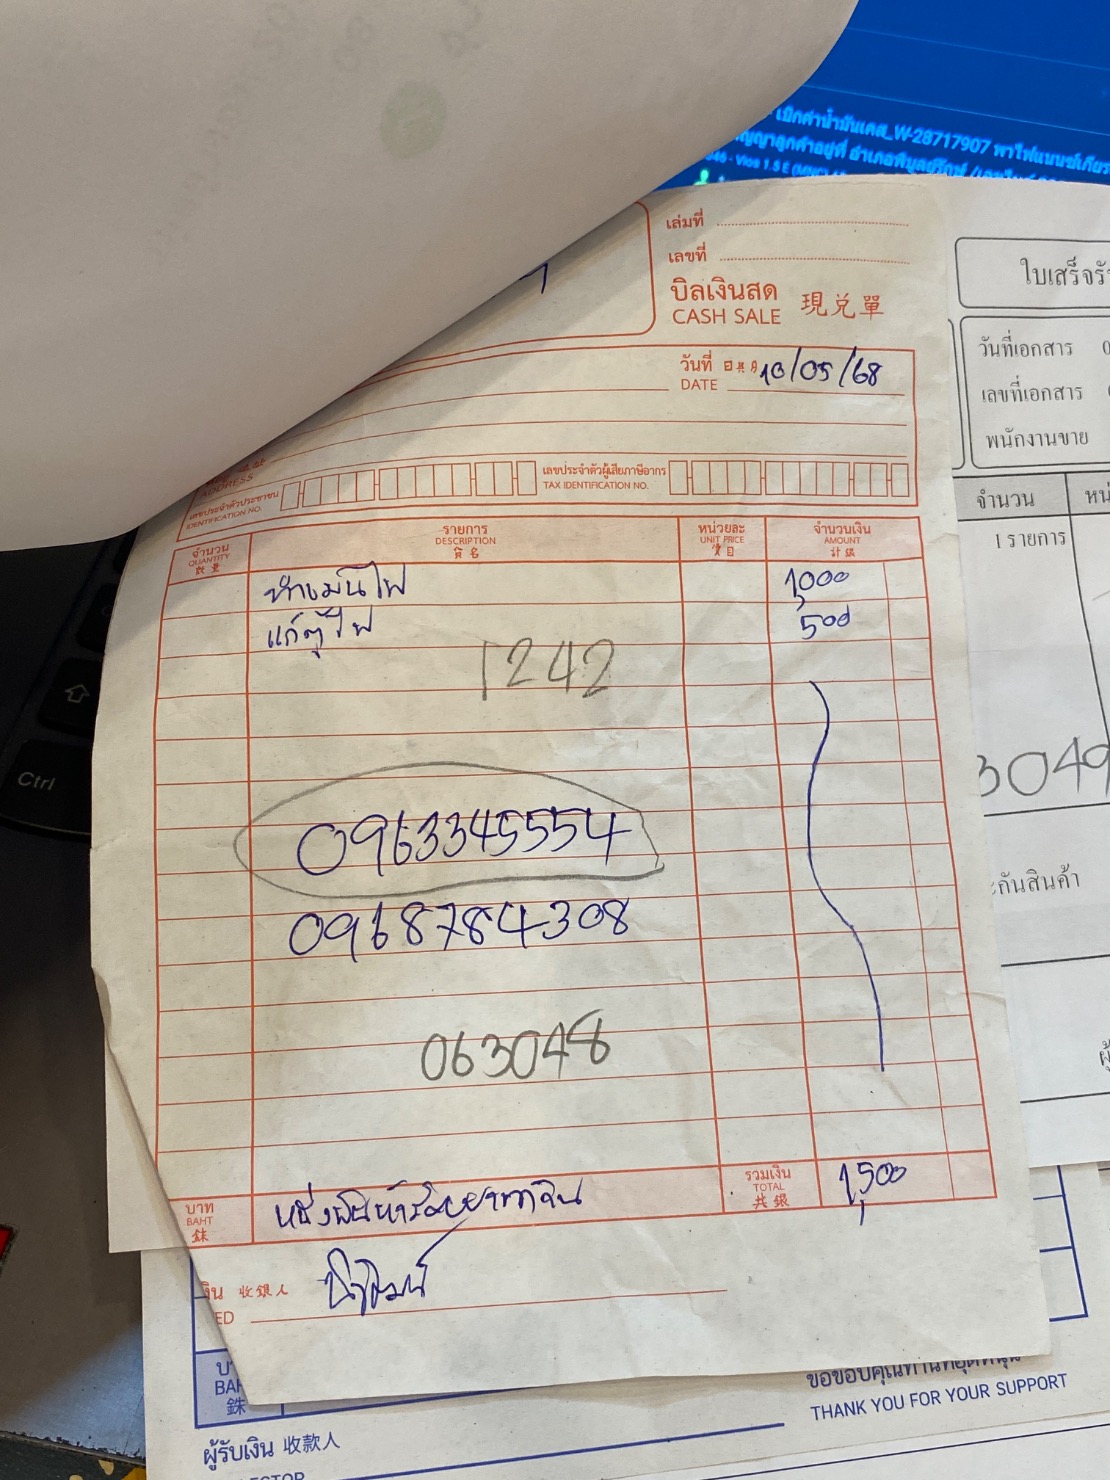 เบิกค่าน้ำมันเคส_W-28717907 พาไฟแนนซ์เกียร
ญญาลูกค้าอยู่ที่ อำเภอพิบูลย์รักษ์
046 - Vios 1.5 E
เล่มที่
เลขที่
บิลเงินสด 現兑單
CASH SALE
วันที่ 10/05/68
DATE
ADDRESS
เลขประจำตัวประชาชน
IDENTIFICATION NO.
เลขประจำตัวผู้เสียภาษีอากร
TAX IDENTIFICATION NO.
จำนวน รายการ หน่วยละ จำนวนเงิน
QUANTITY DESCRIPTION UNIT PRICE AMOUNT
數量 貨名 價目 計銀
ทำเมนไฟ 1,000
แก้ตู้ไฟ 500
1242
0963345554
0968784308
063048
บาท รวมเงิน 1,500
BAHT หนึ่งพันห้าร้อยบาทถ้วน TOTAL
銖 共銀
งิน 收銀人
ED
ใบเสร็จรั
วันที่เอกสาร 0
เลขที่เอกสาร
พนักงานขาย
จำนวน หน่
1 รายการ
3049
ะกันสินค้า
ผู้
บา
BAH
銖
ขอขอบคุณท่านที่อุดหนุน
THANK YOU FOR YOUR SUPPORT
ผู้รับเงิน 收款人